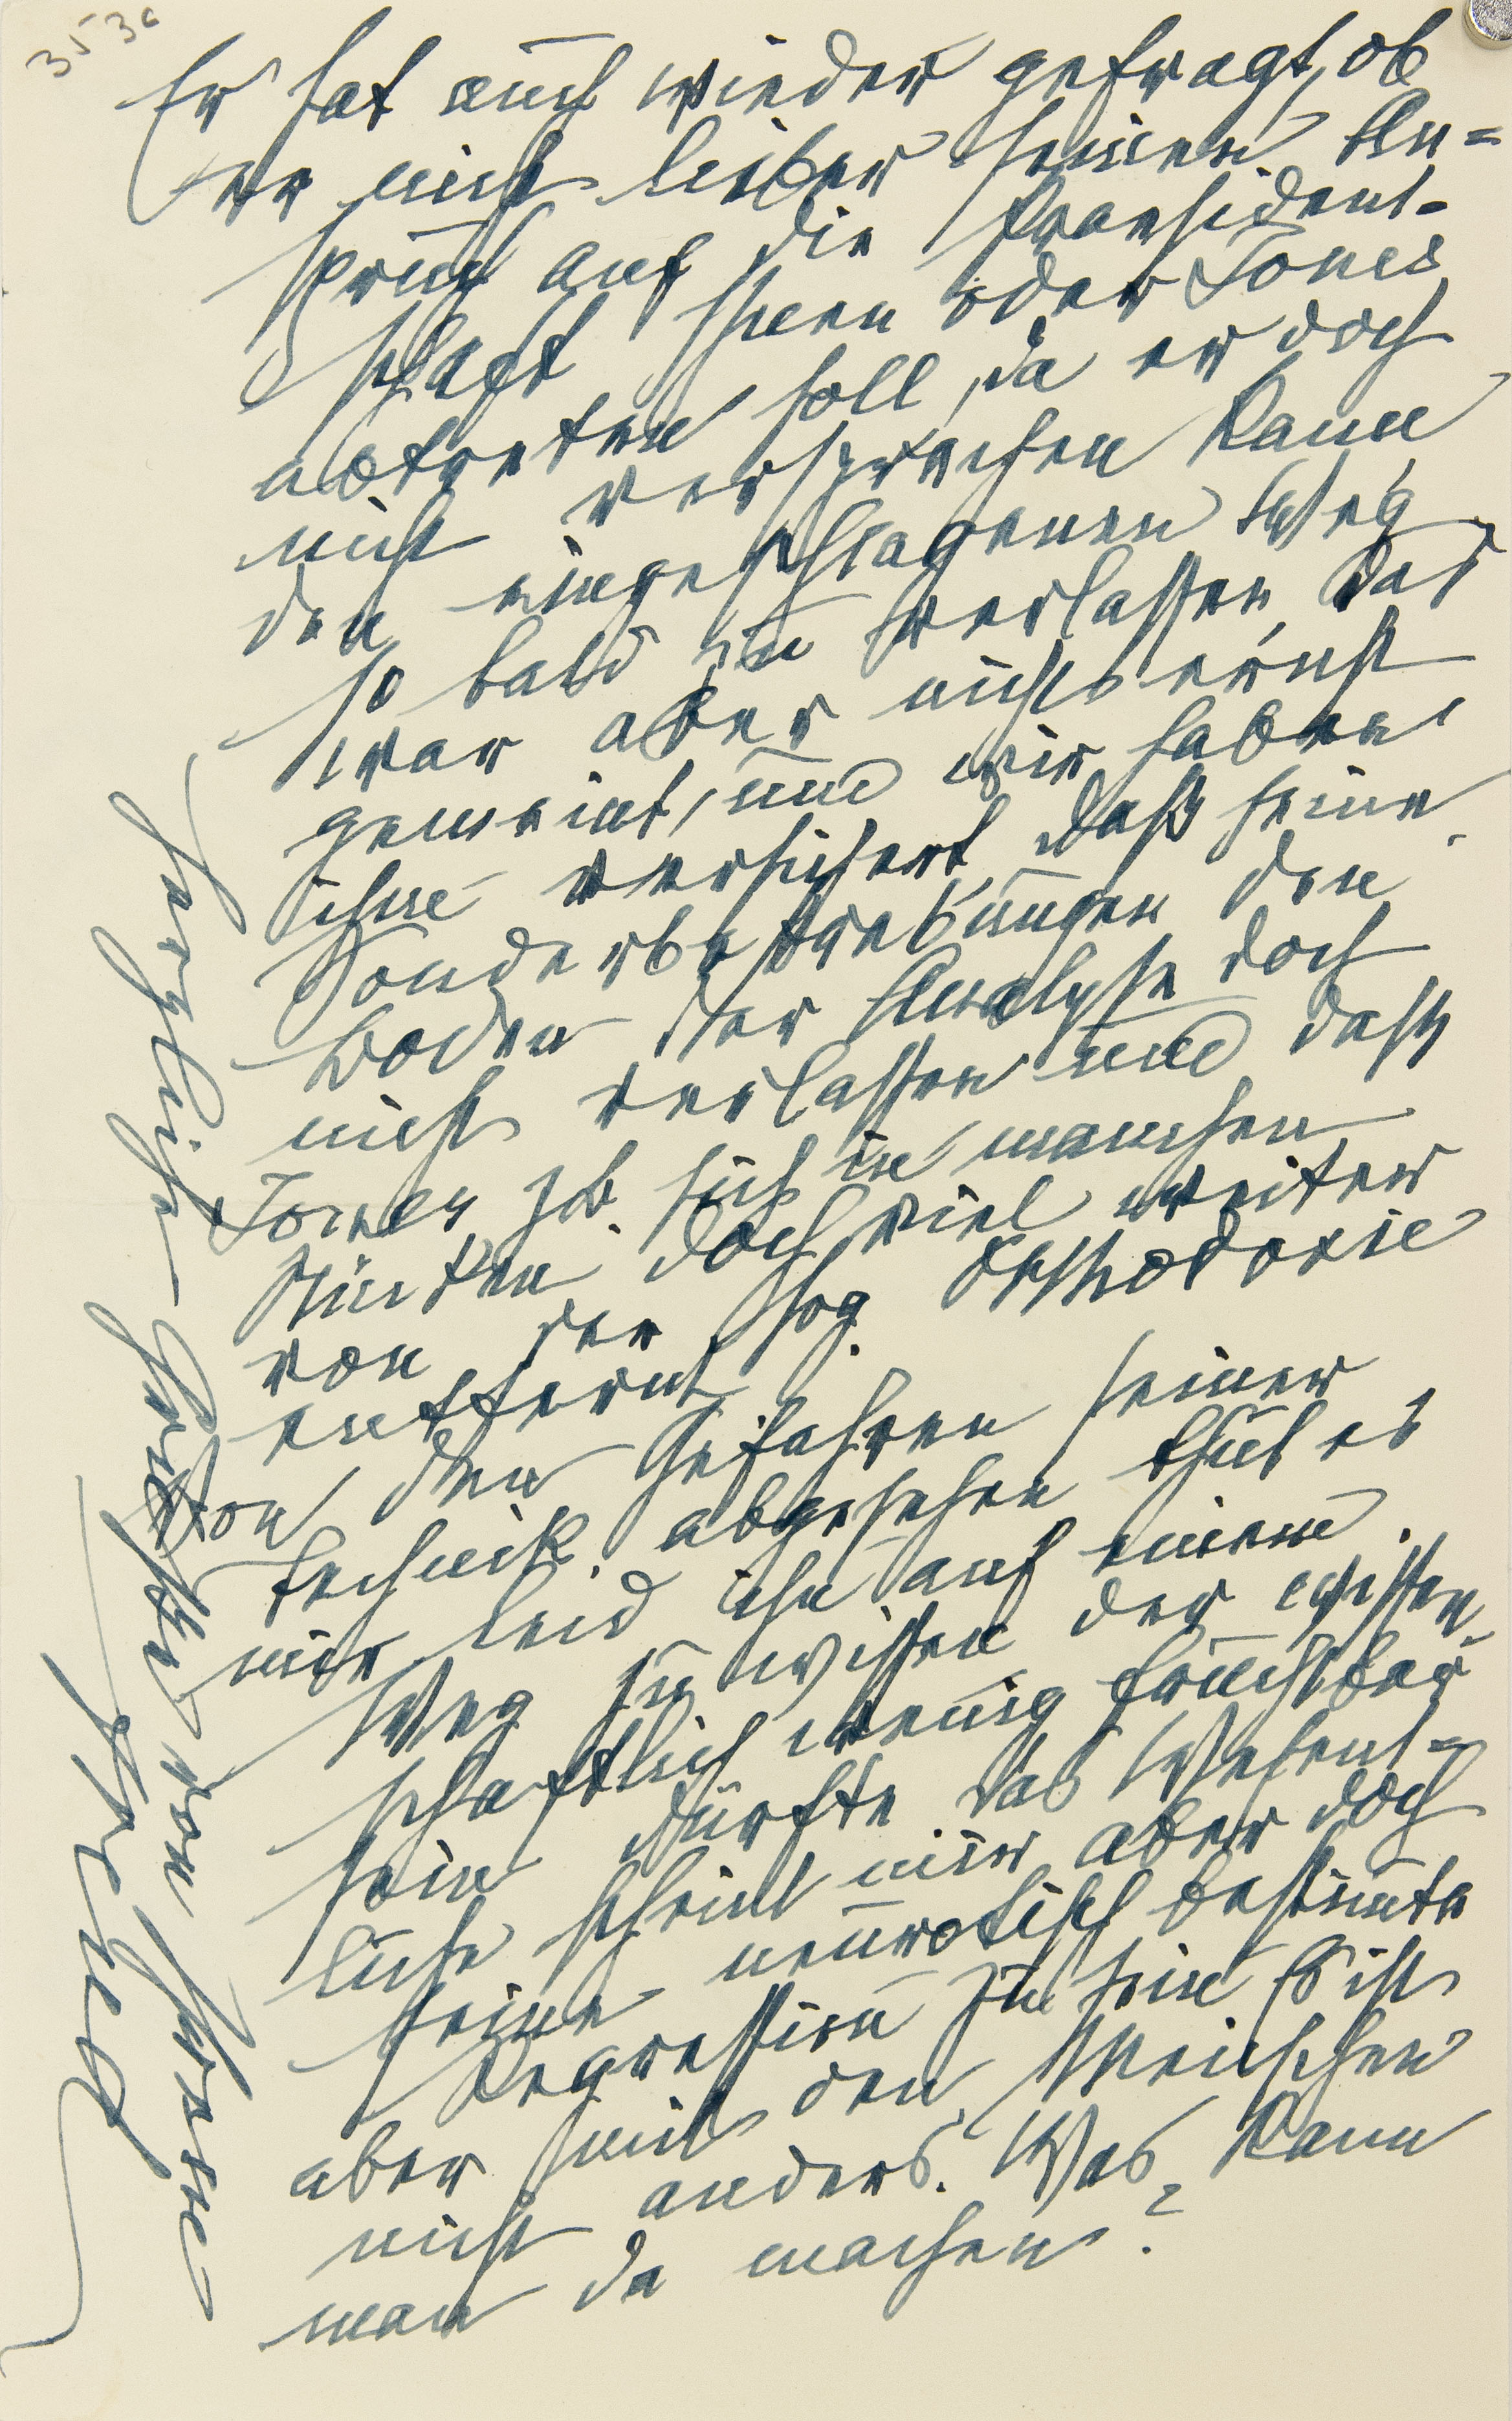 353c
Er hat auch wieder gefragt, ob
er nicht lieber seinen An=
spruch auf die Praesident=
schaft Ihnen oder Jones
abtreten soll, da er doch
nicht versprechen kann
den eingeschlagenen Weg
so bald zu verlassen. Das
war aber nicht ernst
gemeint, und wir haben
ihm versichert, daß seine
Sonderbestrebungen den
Boden der Analyse doch
nicht verlassen und daß
Jones zB. sich in manchen
Punkten doch viel weiter
von der sog. Orthodoxie
entfernt.
Von den Gefahren seiner
Technik abgesehen thut es
mir leid ihn auf einem
Weg zu wissen der wissen
schaftlich wenig fruchtbar
sein dürfte. Das Wesent=
liche scheint mir aber doch
seine neurotisch bestimte
Regression zu sein. So ist
aber mit den Menschen
nicht anders. Was kann
man da machen?
Herzliche Grüße von Ihrem
Freud